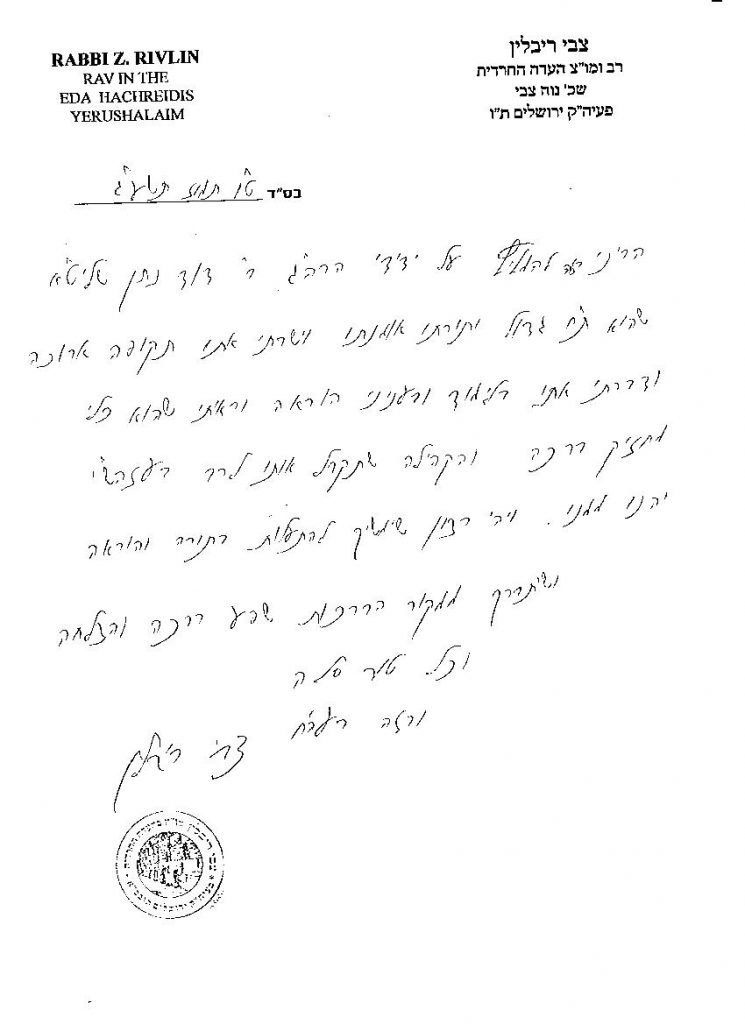 RABBI Z. RIVLIN
RAV IN THE
EDA HACHREIDIS
YERUSHALAIM
צבי ריבלין
רב ומו"צ העדה החרדית
שכ' נוה צבי
פעיה"ק ירושלים ת"ו
בס"ד ט"ו תמוז תשע"ג
הריני בזה על ידידי הרה"ג ר' דוד נתן שליט"א
שהוא ת"ח גדול ותורתו אומנתו וישבתי אתו תקופה ארוכה
ודברתי אתו בלימוד ובעניני הוראה וראיתי שהוא כלי
מחזיק ברכה והקהילה שתקבל אותו לרב בעזהש"י
יהנו ממנו. ויהי רצון שימשיך להתעלות בתורה והוראה
ושיתברך ממקור הברכות שפע ברכה והצלחה
וכל טוב סלה
ובזה בעה"ח צבי ריבלין